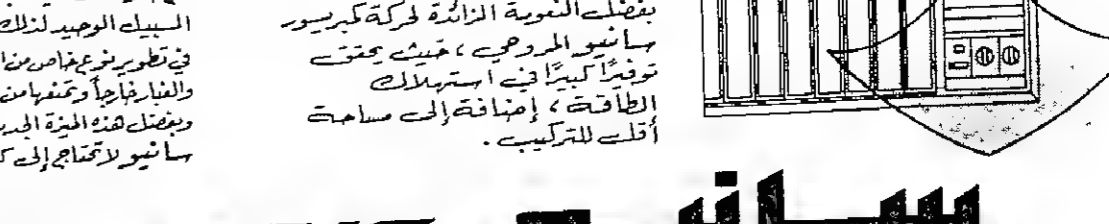 بفضل النعومة الزائدة لحركة كمبريسور
سانيو المروحي ، حيث يحقق
توفيرًا كبيرًا في استهلاك
الطاقة ، إضافة إلى مساحة
أقل للتركيب .
السبيل الوحيد لذلك
في تطوير نوع خاص من
والغبار خارجاً وتمنعها من
وبفضل هذه الميزة
سانيو لا تحتاج إلى